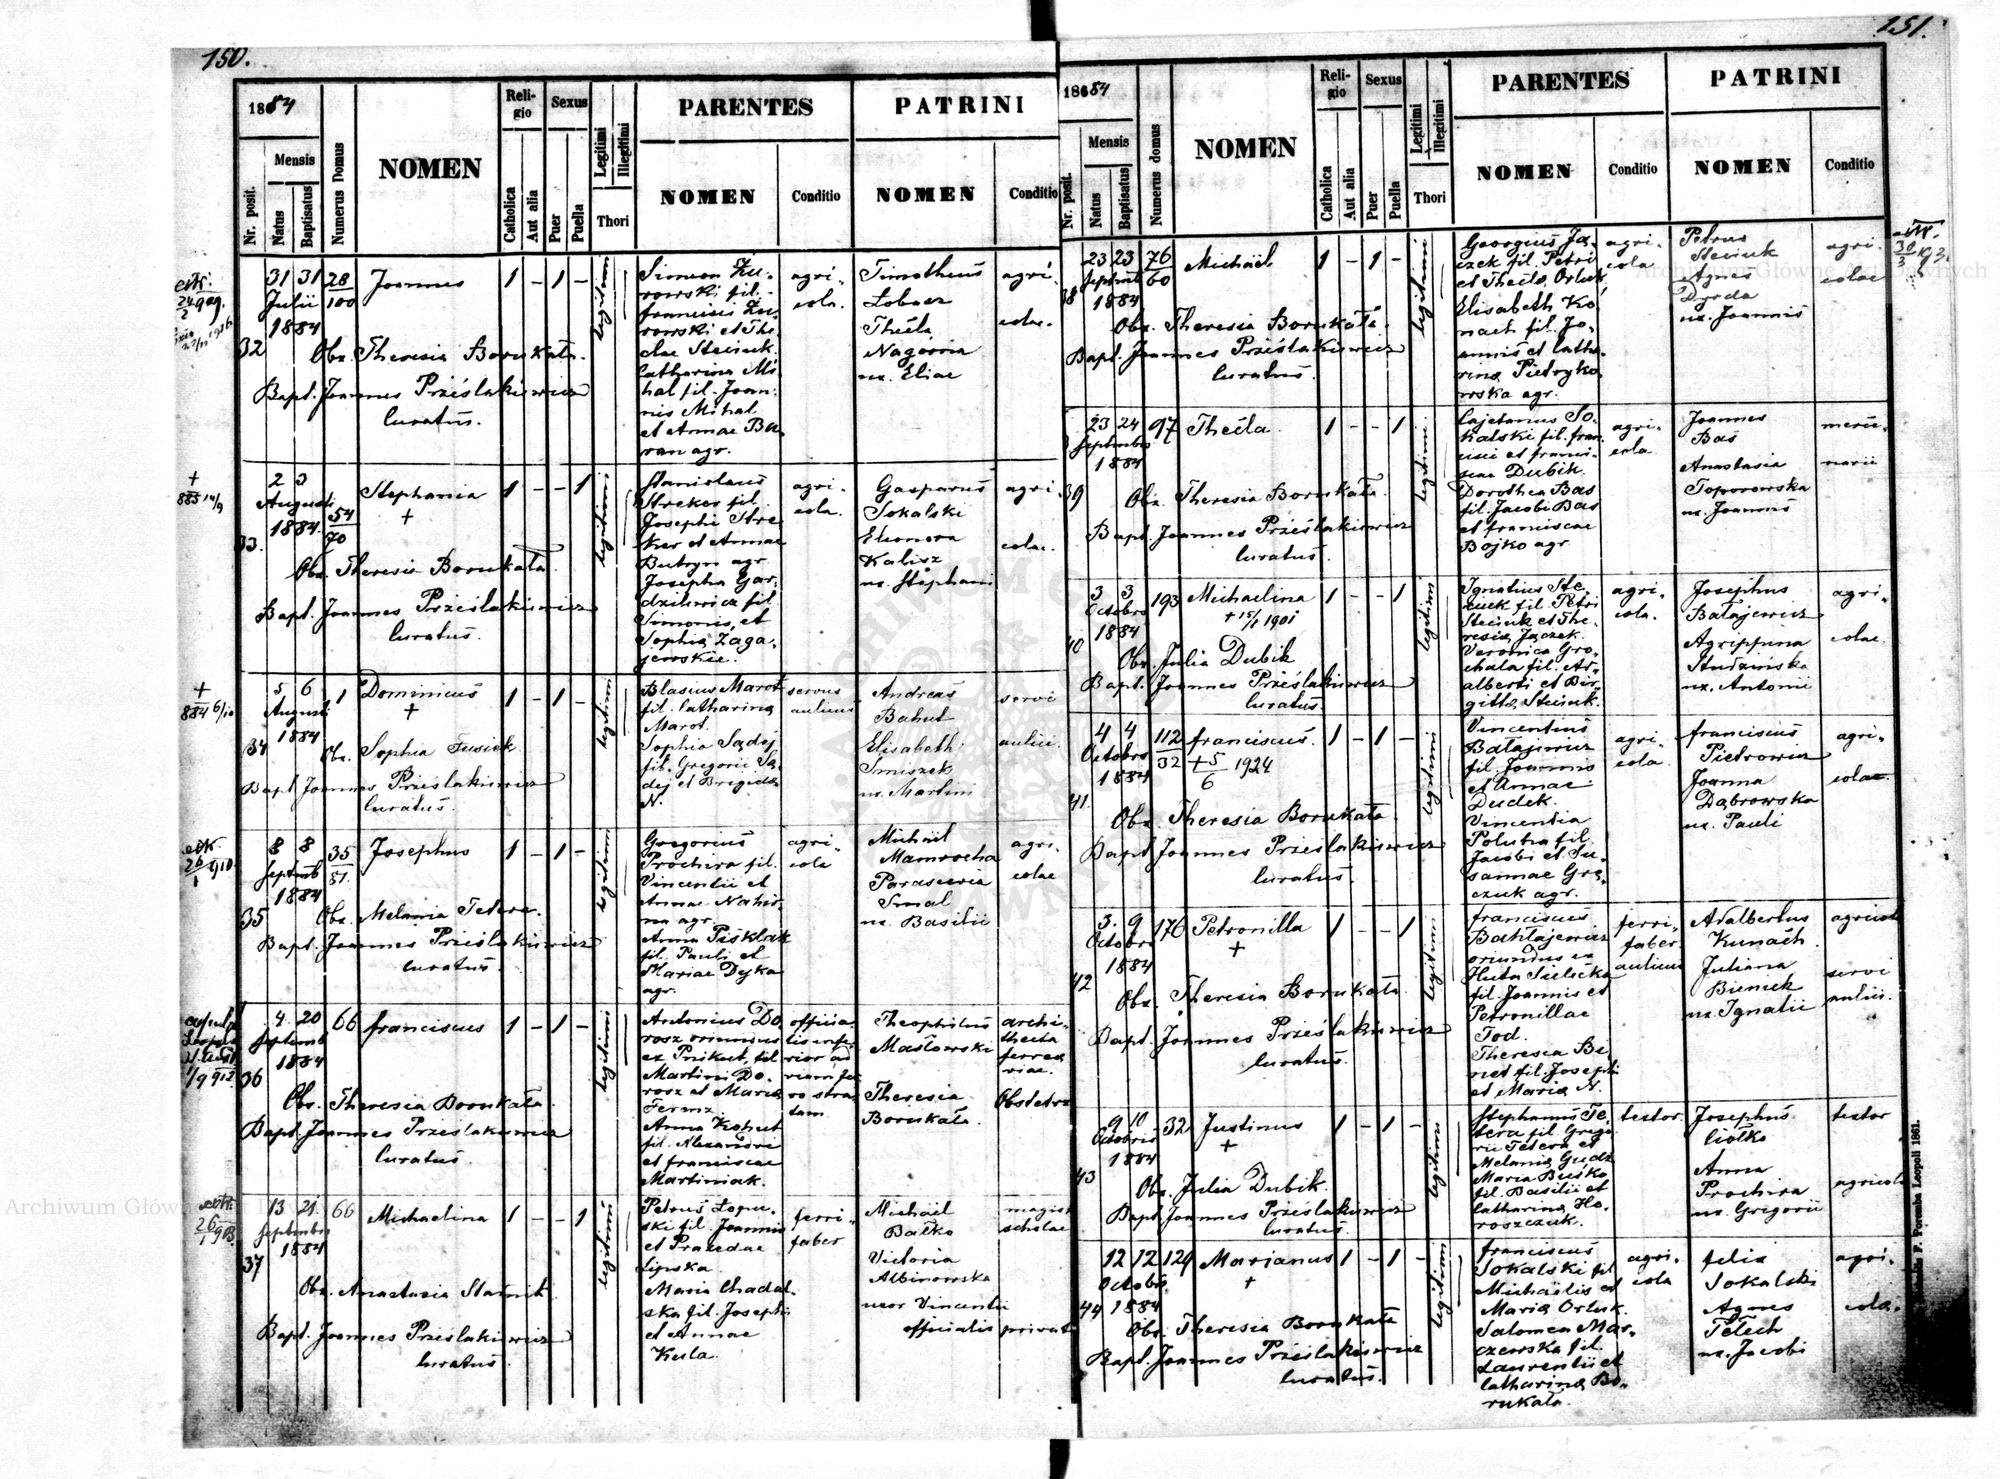 150.
1884
Nr. posit.
Mensis
Natus
Baptisatus
Numerus Domus
NOMEN
Religio
Catholica
Aut alia
Sexus
Puer
Puella
Legitimi
Illegitimi
Thori
PARENTES
NOMEN
Conditio
PATRINI
NOMEN
Conditio
32
31 31 28/100 Joannes 1 - 1 -
Julii
1884
Obs. Theresia Borukała
Bapt. Joannes Prześlakiewicz
Curatus.
legitimi
Simeon Zu-
rowski fil.
Francisci Zu-
rowski et The-
clae Steciuk.
Catharina Mi-
hal fil. Joan-
nis Mihal
et Annae Ba-
ran agr.
agri-
cola.
Timotheus
Łobacz
Thecla
Nagórna
ux. Eliae
agri-
colae.
33.
2 3 54/70 Stephania 1 - - 1
+
Augusti
1884.
Obs. Theresia Borukała
Bapt. Joannes Prześlakiewicz
Curatus.
legitimi
Stanislaus
Streker fil.
Josephi Stre-
ker et Annae
Butryn agr
Josepha Gar-
dzilewicz fil.
Simonis et
Sophia Zaga-
jewskie.
agri-
cola.
Gasparus
Sokalski
Eleonora
Kalisz
ux. Stephani
agri-
colae.
34
5 6 1 Dominicus 1 - 1 -
+
Augusti
1884
Obs. Sophia Fusiek
Bapt. Joannes Prześlakiewicz
Curatus.
legitimi
Blasius Marot
fil. Catharina
Marot.
Sophia Sadej
fil. Gregorii Sa-
dej et Brigida
N.
servus
aulicus
Andreas
Bahut
Elisabeth
Smiszek
ux. Martini
servi
aulici
35
8 8 35/51. Josephus 1 - 1 -
Septemb
1884
Obs. Melania Tetera.
Bapt. Joannes Prześlakiewicz
Curatus.
legitimi
Gregorius
Prochira fil.
Vincentii et
Annae Nahir-
na agr.
Anna Pisklak
fil. Pauli et
Mariae Dyka
agr.
agri-
cola
Michael
Mamrocha
Parascevia
Smal
ux. Basilii
agri-
colae
36
4 20 66 Franciscus 1 - 1 -
Septemb
1884
Obs. Theresia Borukała.
Bapt. Joannes Prześlakiewicz
Curatus.
legitimi
Antonius Do-
rosz oriundus
ex Prikut, fil
Martini Do-
rosz et Maria
Ferenz
Anna Kohut
fil. Alexandri
et Franciscae
Martiniak.
officia-
lis infe-
rior ad
viam fer-
ro stra-
tam
Theophilus
Masłowski
Theresia
Borukała.
archi-
thecta
ferrea
viae.
Obstetrix
37
13 21 66 Michaelina 1 - - 1
Septembr
1884
Obs. Anastasia Stasnik
Bapt. Joannes Prześlakiewicz
Curatus.
legitimi
Petrus Łopu-
ski fil. Joannis
et Praxedae
Lipska.
Maria Chadal-
ska fil. Josephi
et Annae
Kula.
ferri-
faber
Michael
Bałko
Victoria
Albinowska
uxor Vincentii
officialis privat
magist
scholae
151.
1884
Nr. posit.
Mensis
Natus
Baptisatus
Numerus domus
NOMEN
Religio
Catholica
Aut alia
Sexus
Puer
Puella
Legitimi
Illegitimi
Thori
PARENTES
NOMEN
Conditio
PATRINI
NOMEN
Conditio
38
23 23 76/60 Michael 1 - 1 -
Septemb
1884
Obs. Theresia Borukała.
Bapt. Joannes Prześlakiewicz
Curatus.
legitimi
Georgius Ja-
czek fil. Petri
et Thecla Orluk
Elisabeth Ko-
nach fil. Jo-
annis et Catha-
rina Pietryko-
wska agr.
agri-
cola
Petrus
Steciuk
Agnes
Dyrda
ux. Joannis
agri-
colae
39
23 24 97 Thecla 1 - - 1
Septembris
1884
Obs. Theresia Borukała
Bapt. Joannes Prześlakiewicz
Curatus.
legitimi
Cajetanus So-
kalski fil. Fran-
cisci et Franci-
scae Dubik.
Dorothea Bas
fil. Jacobi Bas
et Franciscae
Bojko agr
agri-
cola.
Joannes
Bas
Anastasia
Toporowska
ux. Joannis
merce-
narii
40
3 3 193 Michaelina 1 - - 1
+ 15/1 1901
Octobris
1884
Obs. Julia Dubik
Bapt. Joannes Prześlakiewicz
Curatus.
legitimi
Ignatius Ste-
ciuk fil. Petri
Steciuk et The-
resia Jaczek.
Veronica Gro-
chala fil. A-
dalberti et Bir-
gitta Steciuk.
agri-
cola.
Josephus
Bałajewicz
Agrippina
Studzińska
ux. Antonii
agri-
colae
41.
4 4 112/32 Franciscus. 1 - 1 -
+ 5/6 1924
Octobris
1884
Obs. Theresia Borukała.
Bapt. Joannes Prześlakiewicz
Curatus.
legitimi
Vincentius
Bałajewicz
fil. Joannis
et Annae
Dudek.
Vincentia
Polutra fil.
Jacobi et Su-
sannae Gre-
czuk agr.
agri-
cola.
Franciscus
Pietrowicz
Joanna
Dąbrowska
ux. Pauli
agri-
colae.
42
3. 9 176 Petronilla 1 - - 1
+
Octobris
1884
Obs. Theresia Borukała.
Bapt. Joannes Prześlakiewicz
Curatus.
legitimi
Franciscus
Bałłajewicz
oriundus ex
Huta Sielicka
fil. Joannis et
Petronillae
Tod.
Theresia Be-
net fil. Josephi
et Maria N.
ferri-
faber
aulicus
Adalbertus
Kunach.
Juliana
Bieniek
ux. Ignatii
agricola
servi
aulici.
43
9 10 32 Justinus 1 - 1 -
+
Octobris
1884
Obs. Julia Dubik.
Bapt. Joannes Prześlakiewicz
Curatus.
legitimi
Stephanus Te-
tera fil. Grego-
rii Tetera et
Melania Gudz
Maria Busko
fil. Basilii et
Catharina Ho-
roszczuk.
textor
Josephus
Ciołko
Anna
Prochira
ux. Grigorii
textor
agricola
44
12 12 129 Marjanus 1 - 1 -
+
Octobris
1884
Obs. Theresia Borukała
Bapt. Joannes Prześlakiewicz
Curatus.
legitimi
Franciscus
Sokalski fil.
Michaelis et
Maria Orluk.
Salomea Mar-
czewska fil.
Laurentii et
Catharina Bo-
rukała.
agri-
cola
Felix
Sokalski
Agnes
Telech
ux. Jacobi
agri-
colae.
F. Poremba Leopoli 1861.
Archiwum Główne Akt Dawnych